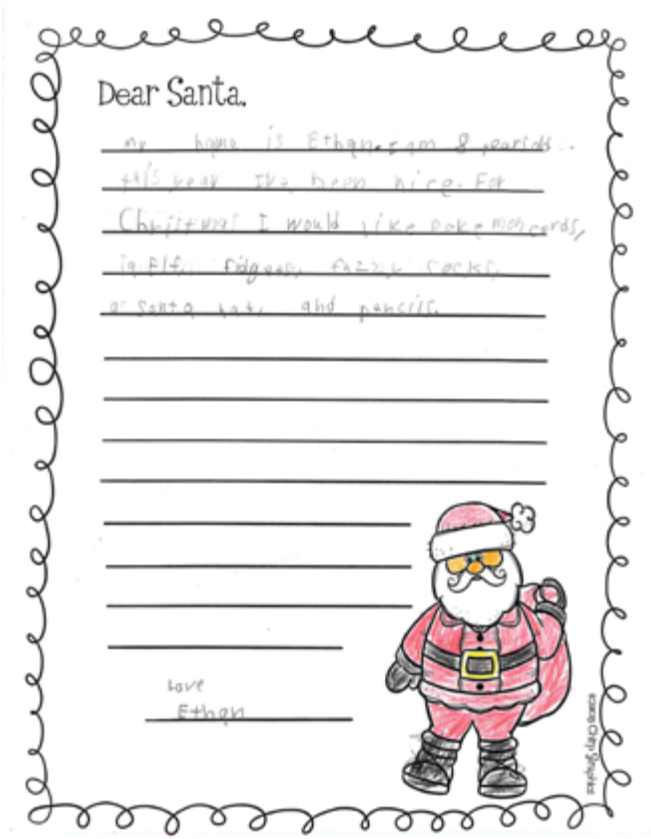 Dear Santa,
my name is Ethan. I am 8 years old.
this year Ive been nice. For
Christmas I would like Poke mon cards,
Elf, fidgees, fuzzy socks,
a Santa hat, and pencils.
Love
Ethan